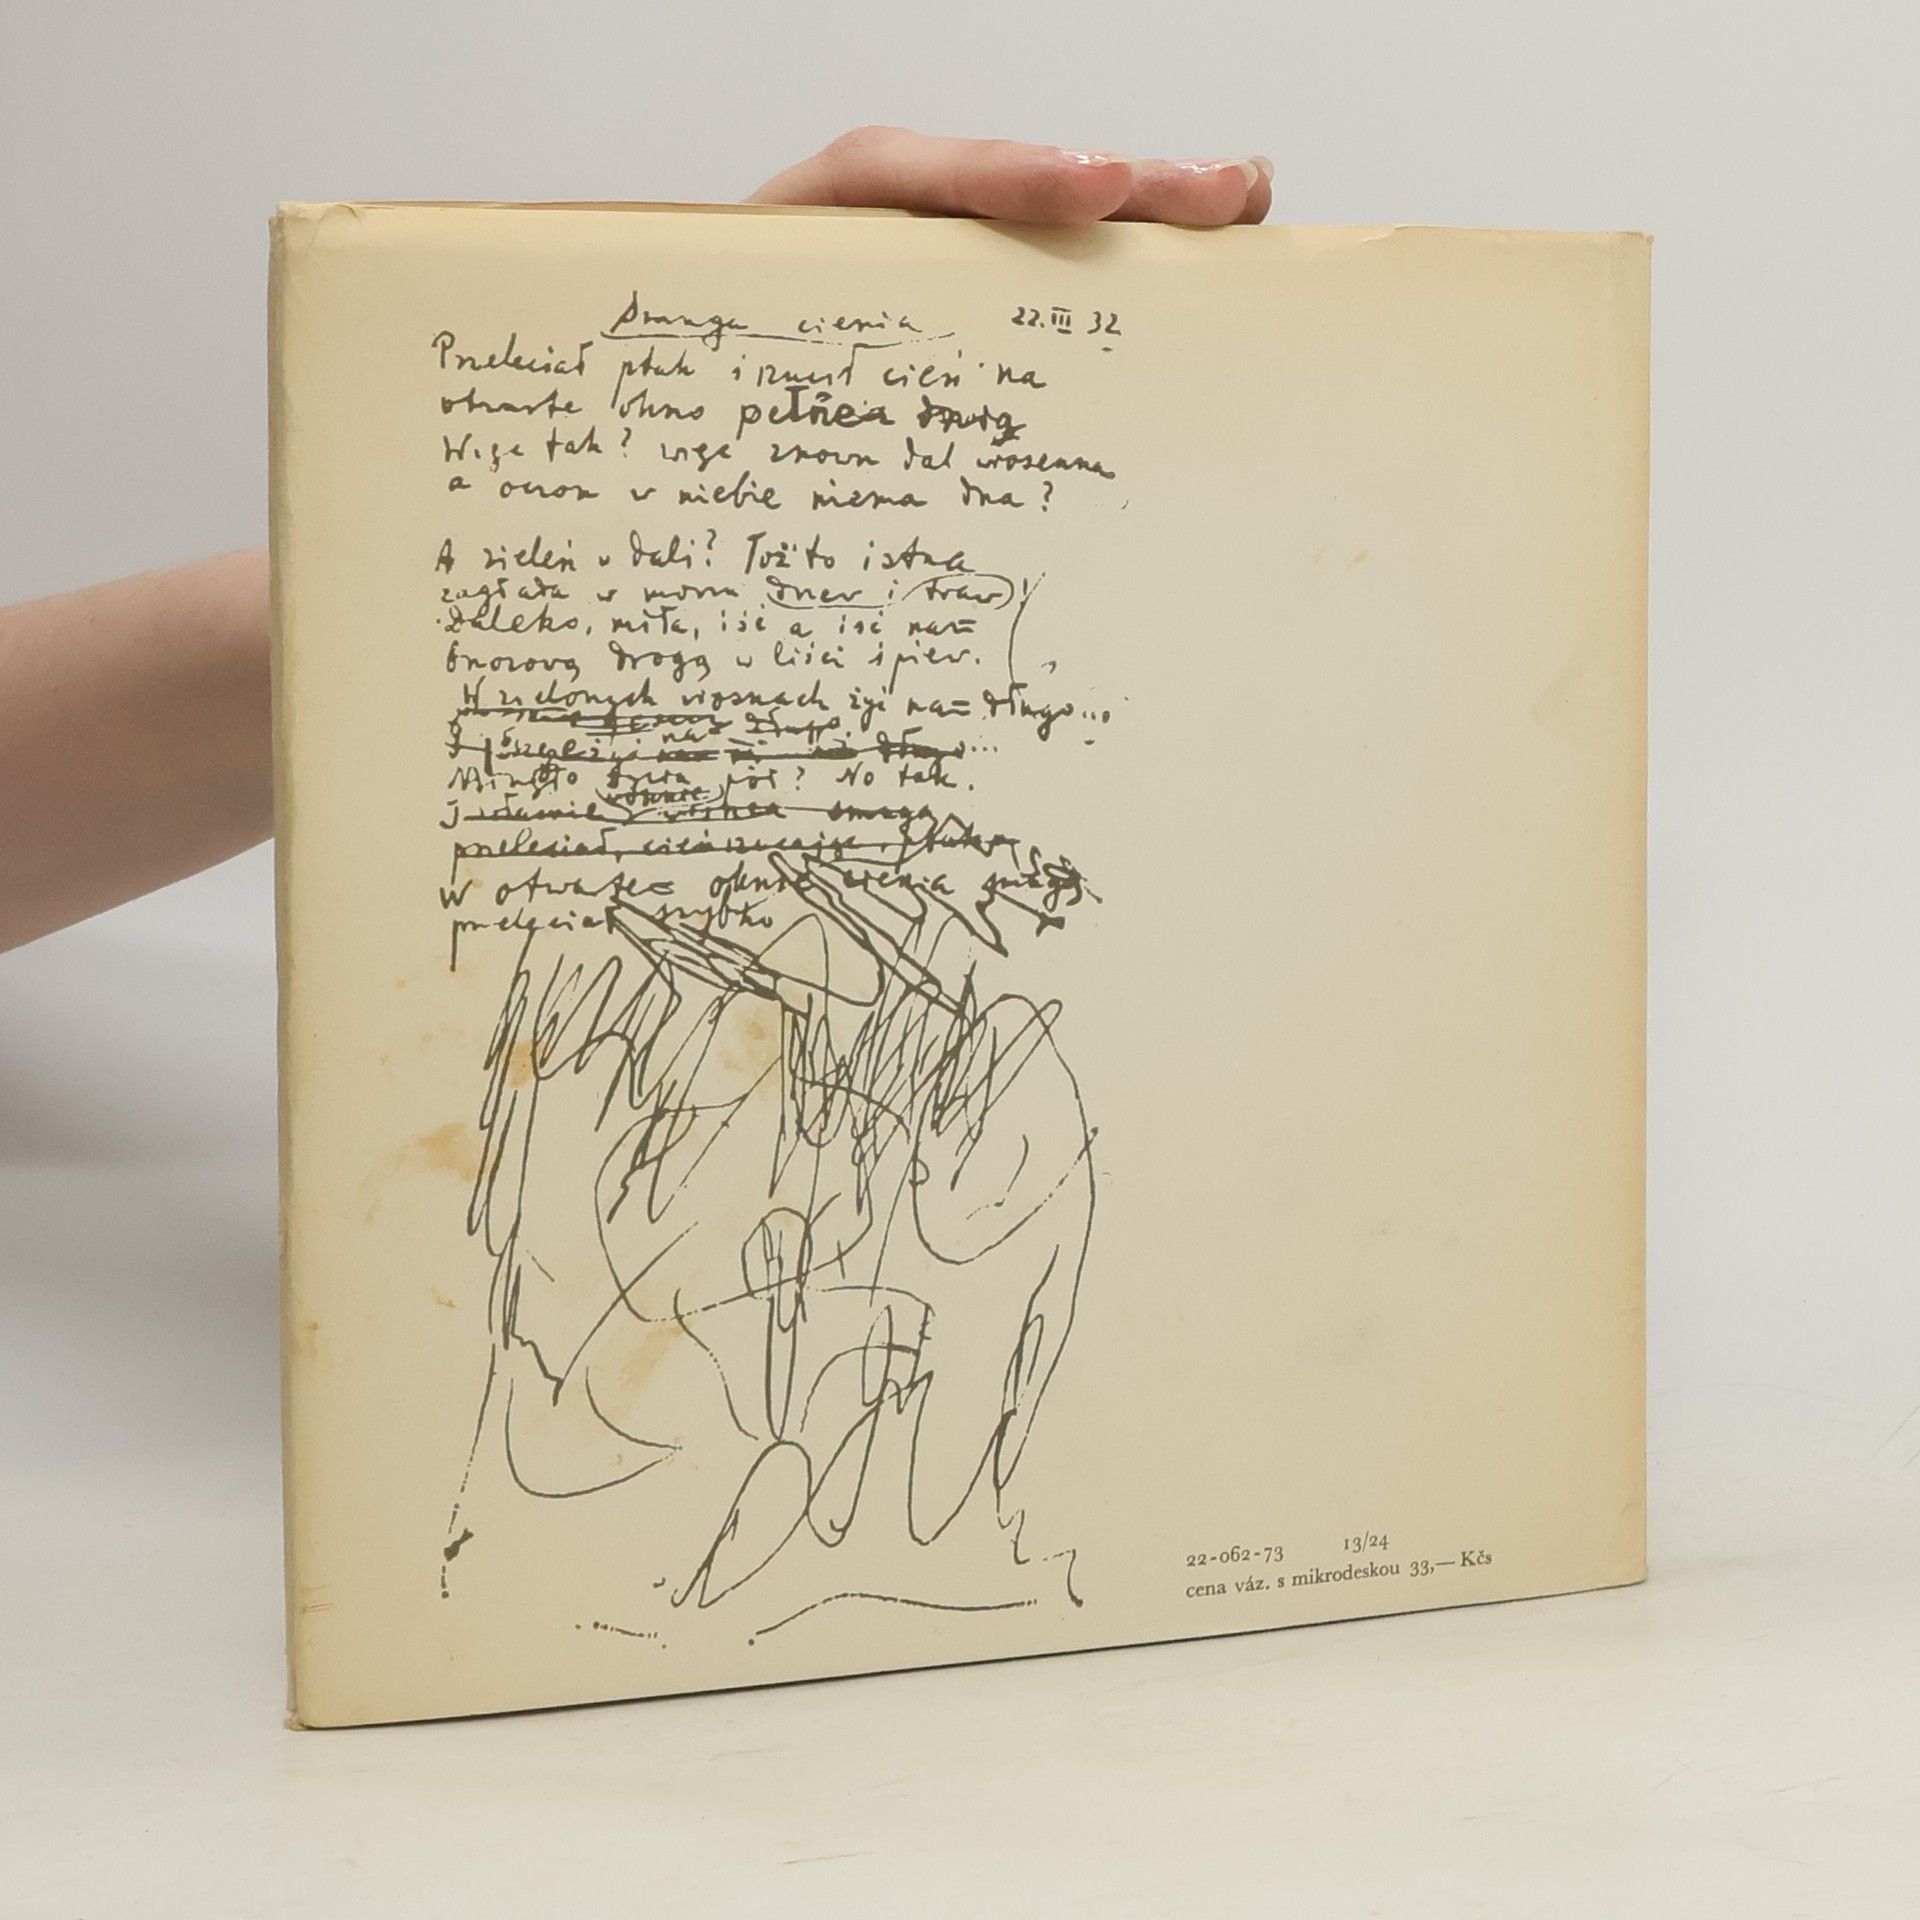 Smuga cienia 22.III 32
Przeleciał ptak i rzucił cień na
otwarte okno
Więc tak? więc znowu dal wiosenna
a oczom w niebie niema dna?
A zieleń w dali? Toż to istna
zagłada w morzu drzew i traw!
Daleko, miła, iść a iść nam
borową drogą w liści śpiew.
W zielonych wiosnach żyć nam długo...
długo...
Minęło pór? No tak.
I właśnie smugą
przeleciał, cień rzucając, ptak
W otwartem oknie cienia smugą
przeleciał szybko
22-062-73 13/24
cena váz. s mikrodeskou 33,— Kčs